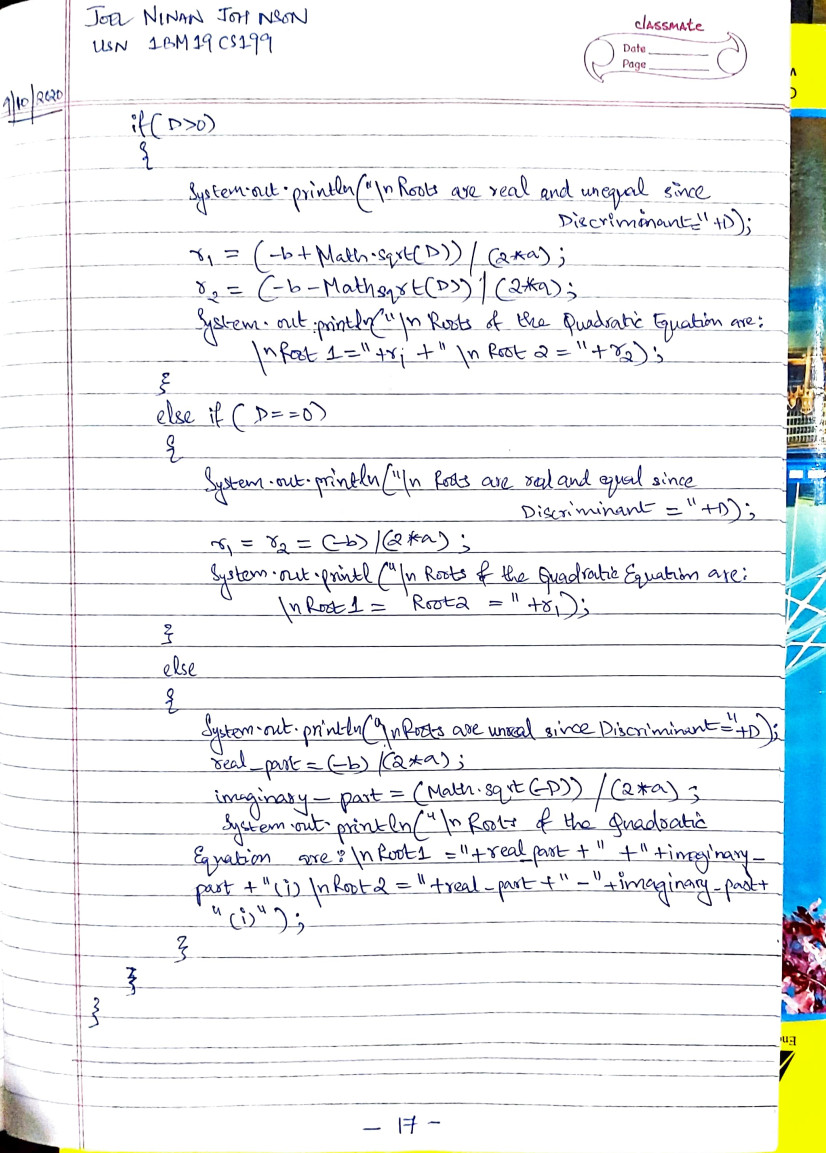 JOEL NINAN JOHNSON
USN 1BM19CS199
classmate
Date
Page
1/10/2020
if(D>0)
{
System.out.println("\n Roots are real and unequal since
Discriminant="+D);
r₁ = (-b+Math.sqrt(D))/(2*a);
r₂ = (-b-Mathsqrt(D))/(2*a);
System.out.println("\n Roots of the Quadratic Equation are:
\n Root 1="+r₁+"\n Root 2="+r₂);
}
else if (D==0)
{
System.out.println("\n Roots are real and equal since
Discriminant ="+D);
r₁ = r₂ = (-b)/(2*a);
System.out.printl("\n Roots of the Quadratic Equation are:
\n Root 1 = Root2 ="+r₁);
}
else
{
System.out.println("\n Roots are unreal since Discriminant="+D);
real_part = (-b)/(2*a);
imaginary_part = (Math.sqrt(-D))/(2*a);
System.out.println("\n Roots of the Quadratic
Equation are: \n Root1 ="+real_part+"+"+imaginary_
part+"(i) \n Root2="+real_part+"-"+imaginary_part+
"(i)");
}
}
}
- 17 -